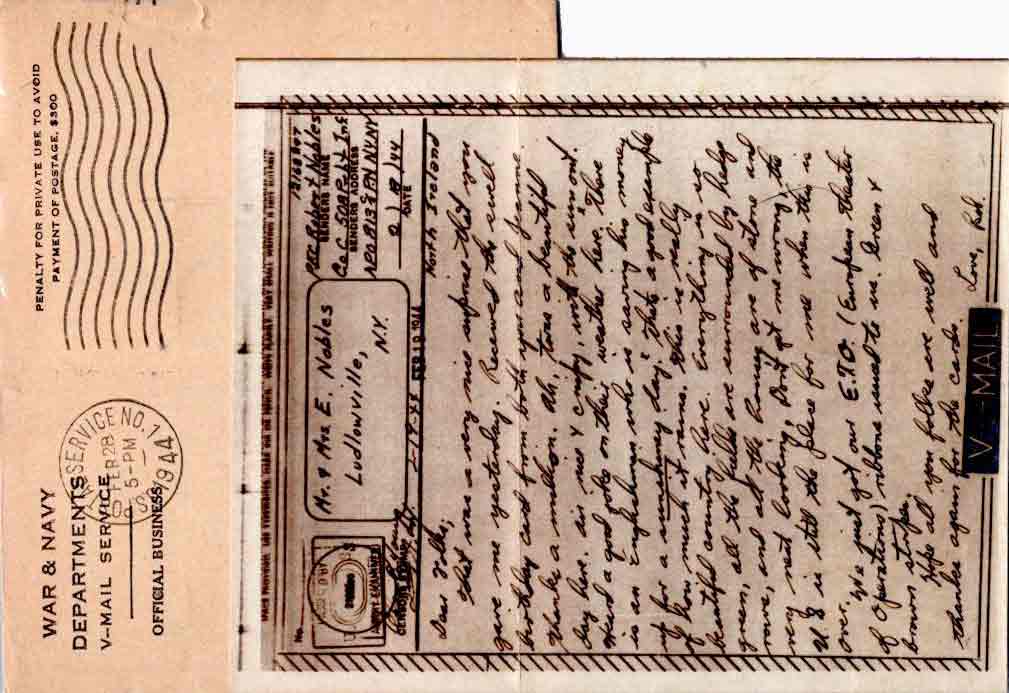 WAR & NAVY
DEPARTMENTS
V-MAIL SERVICE
OFFICIAL BUSINESS
SERVICE NO. 1
FEB 28
5-PM
1944
PENALTY FOR PRIVATE USE TO AVOID
PAYMENT OF POSTAGE, $300
No.
CENSOR'S STAMP
Mr. & Mrs E. Nobles
Ludlowville,
N.Y.
Pfc Robert Nobles
SENDER'S NAME
Co C 508 Inf
SENDER'S ADDRESS
APO 813 PM NY NY
2/19/44
DATE
North Ireland
Dear Folks;
That was a very nice surprise that you
gave me yesterday. Received the swell
birthday card from both you and
Thanks a million. Ah, tons a beautiful
day here. is nice & crispy, with the
Heard a good joke on their weather here. There
is an Englishman who is saving his money
up for a sunshiny day, that's a good example
of how much it rains. This is really
beautiful country here. Everything is so
green, all the fields are surrounded by hedge
rows, and all the homes are of stone and
very neat looking. Don't get me wrong, the
U.S is still the place for me when this is
over. We just got our E.T.O. (European theater
of Operations) ribbons issued to us. Green &
brown stripes.
Hope all you folks are well and
thanks again for the cards.
Love,
V-MAIL